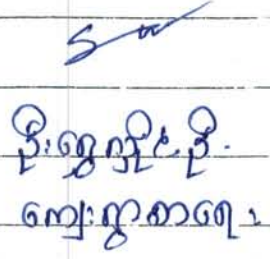 ဦးရွှေကျိုင်းဦး
ကျေးရွာစာရေး